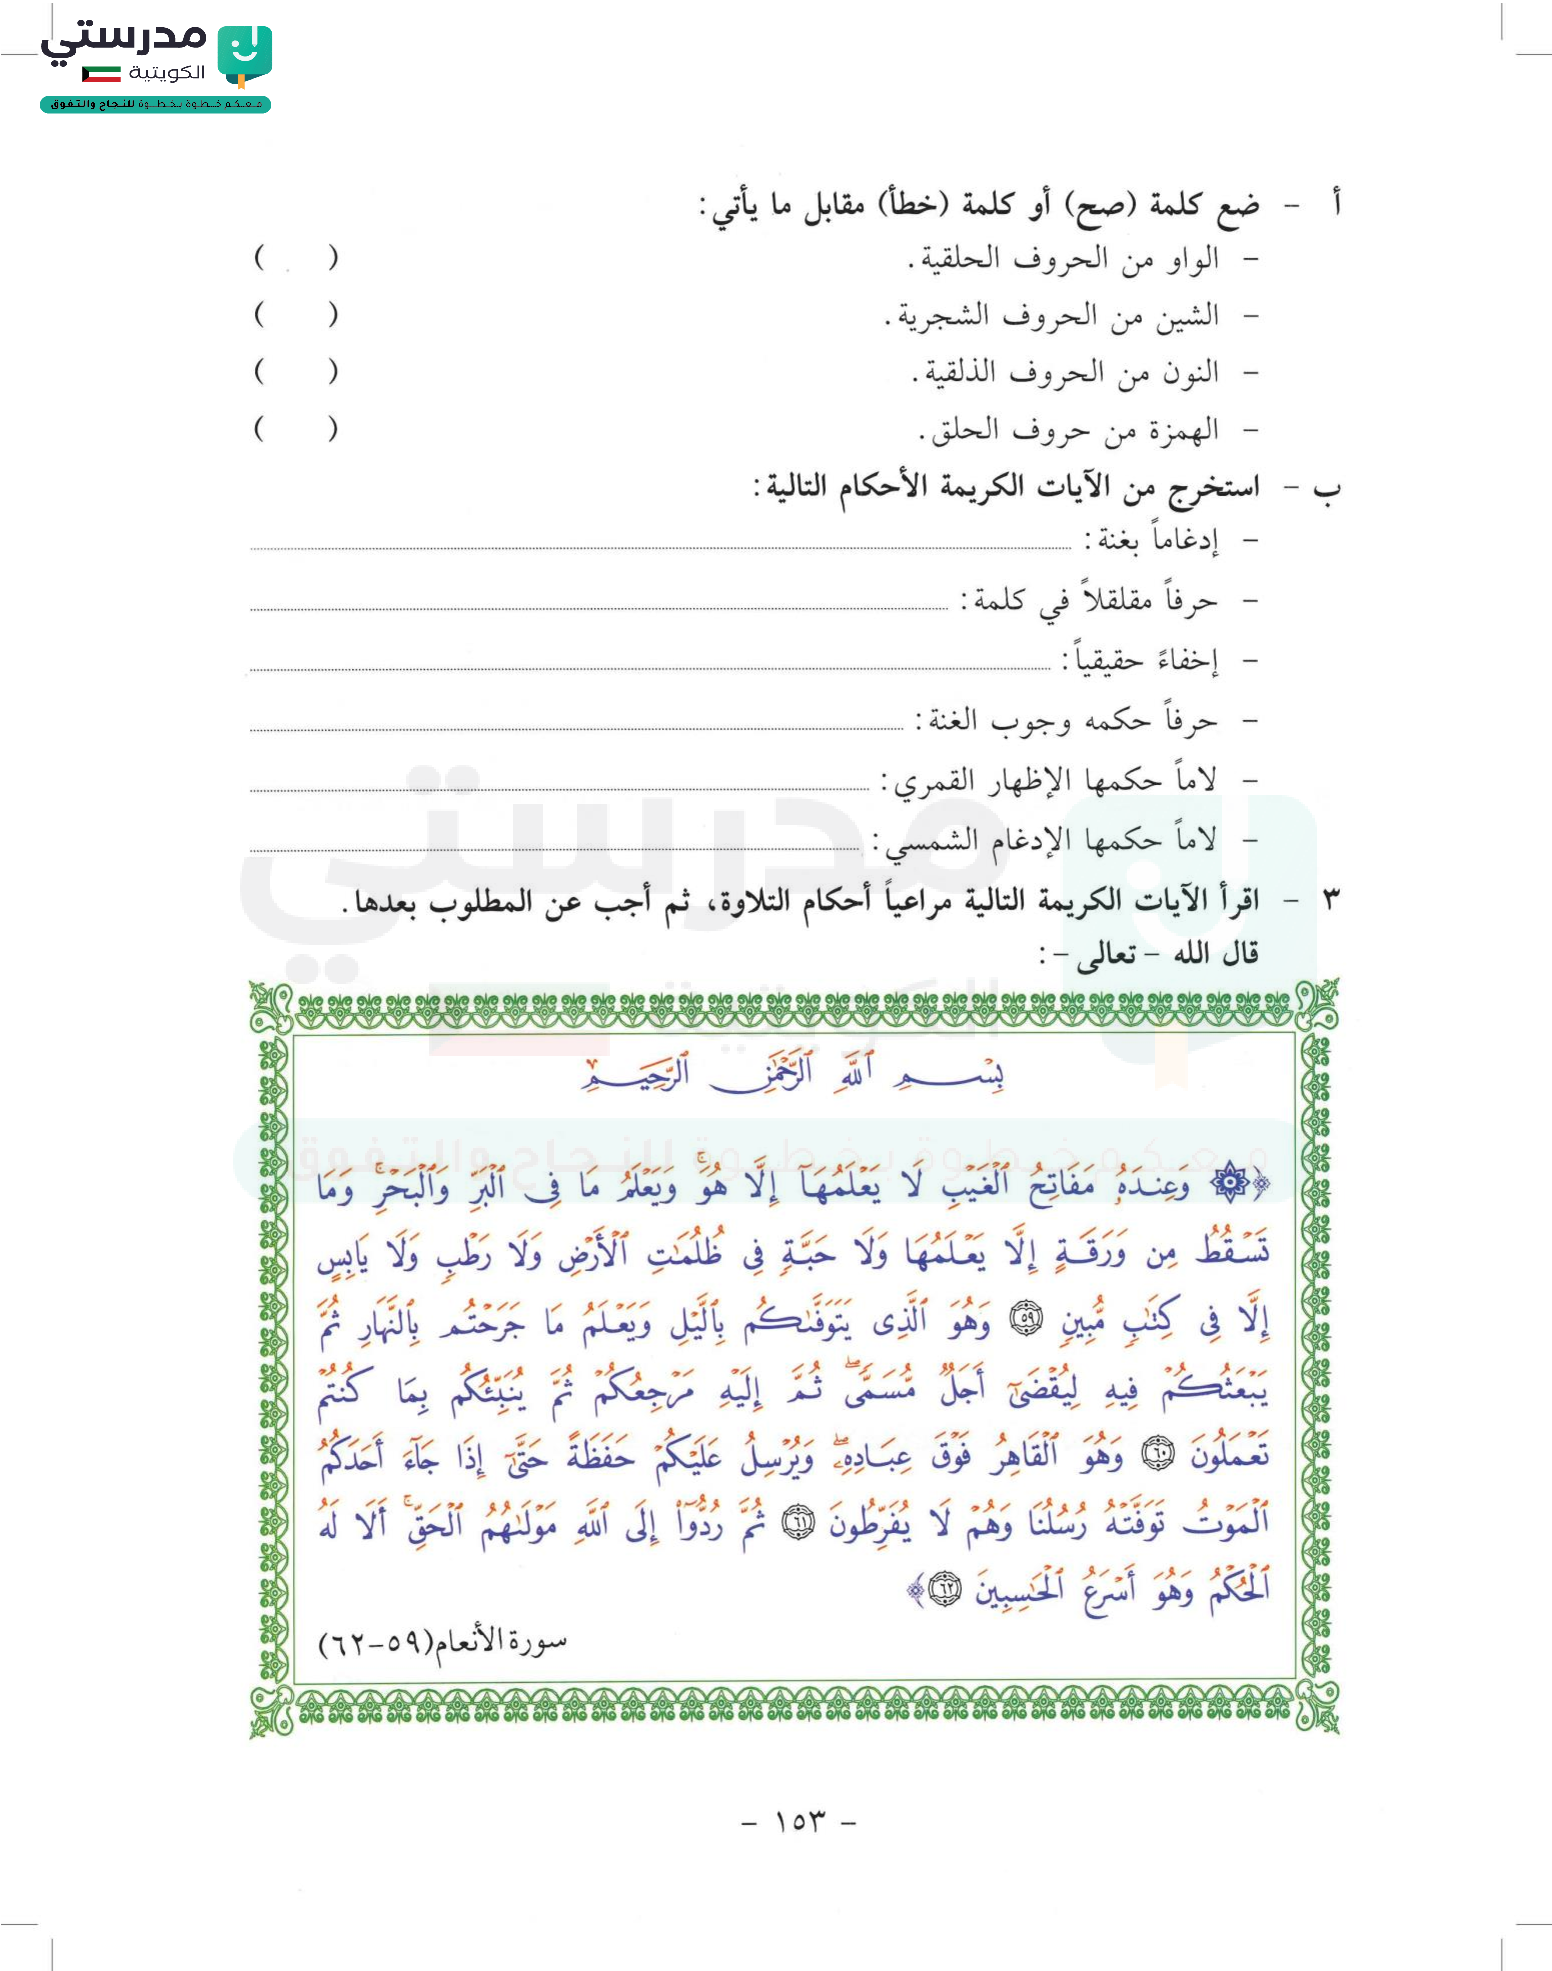 مدرستي
الكويتية
معكم خطوة بخطوة للنجاح والتفوق
أ - ضع كلمة (صح) أو كلمة (خطأ) مقابل ما يأتي:
- الواو من الحروف الحلقية. ( )
- الشين من الحروف الشجرية. ( )
- النون من الحروف الذلقية. ( )
- الهمزة من حروف الحلق. ( )
ب - استخرج من الآيات الكريمة الأحكام التالية:
- إدغاماً بغنة:
- حرفاً مقلقلاً في كلمة:
- إخفاءً حقيقياً:
- حرفاً حكمه وجوب الغنة:
- لاماً حكمها الإظهار القمري:
- لاماً حكمها الإدغام الشمسي:
٣ - اقرأ الآيات الكريمة التالية مراعياً أحكام التلاوة، ثم أجب عن المطلوب بعدها.
قال الله - تعالى -:
بِسْمِ ٱللَّهِ ٱلرَّحْمَٰنِ ٱلرَّحِيمِ
﴿۞ وَعِندَهُۥ مَفَاتِحُ ٱلْغَيْبِ لَا يَعْلَمُهَآ إِلَّا هُوَ ۚ وَيَعْلَمُ مَا فِى ٱلْبَرِّ وَٱلْبَحْرِ ۚ وَمَا
تَسْقُطُ مِن وَرَقَةٍ إِلَّا يَعْلَمُهَا وَلَا حَبَّةٍ فِى ظُلُمَٰتِ ٱلْأَرْضِ وَلَا رَطْبٍ وَلَا يَابِسٍ
إِلَّا فِى كِتَٰبٍ مُّبِينٍ ٥٩ وَهُوَ ٱلَّذِى يَتَوَفَّىٰكُم بِٱلَّيْلِ وَيَعْلَمُ مَا جَرَحْتُم بِٱلنَّهَارِ ثُمَّ
يَبْعَثُكُمْ فِيهِ لِيُقْضَىٰٓ أَجَلٌ مُّسَمًّى ۖ ثُمَّ إِلَيْهِ مَرْجِعُكُمْ ثُمَّ يُنَبِّئُكُم بِمَا كُنتُمْ
تَعْمَلُونَ ٦٠ وَهُوَ ٱلْقَاهِرُ فَوْقَ عِبَادِهِۦ ۖ وَيُرْسِلُ عَلَيْكُمْ حَفَظَةً حَتَّىٰٓ إِذَا جَآءَ أَحَدَكُمُ
ٱلْمَوْتُ تَوَفَّتْهُ رُسُلُنَا وَهُمْ لَا يُفَرِّطُونَ ٦١ ثُمَّ رُدُّوٓا۟ إِلَى ٱللَّهِ مَوْلَىٰهُمُ ٱلْحَقِّ ۚ أَلَا لَهُ
ٱلْحُكْمُ وَهُوَ أَسْرَعُ ٱلْحَٰسِبِينَ ٦٢﴾
سورة الأنعام(٥٩-٦٢)
- ١٥٣ -